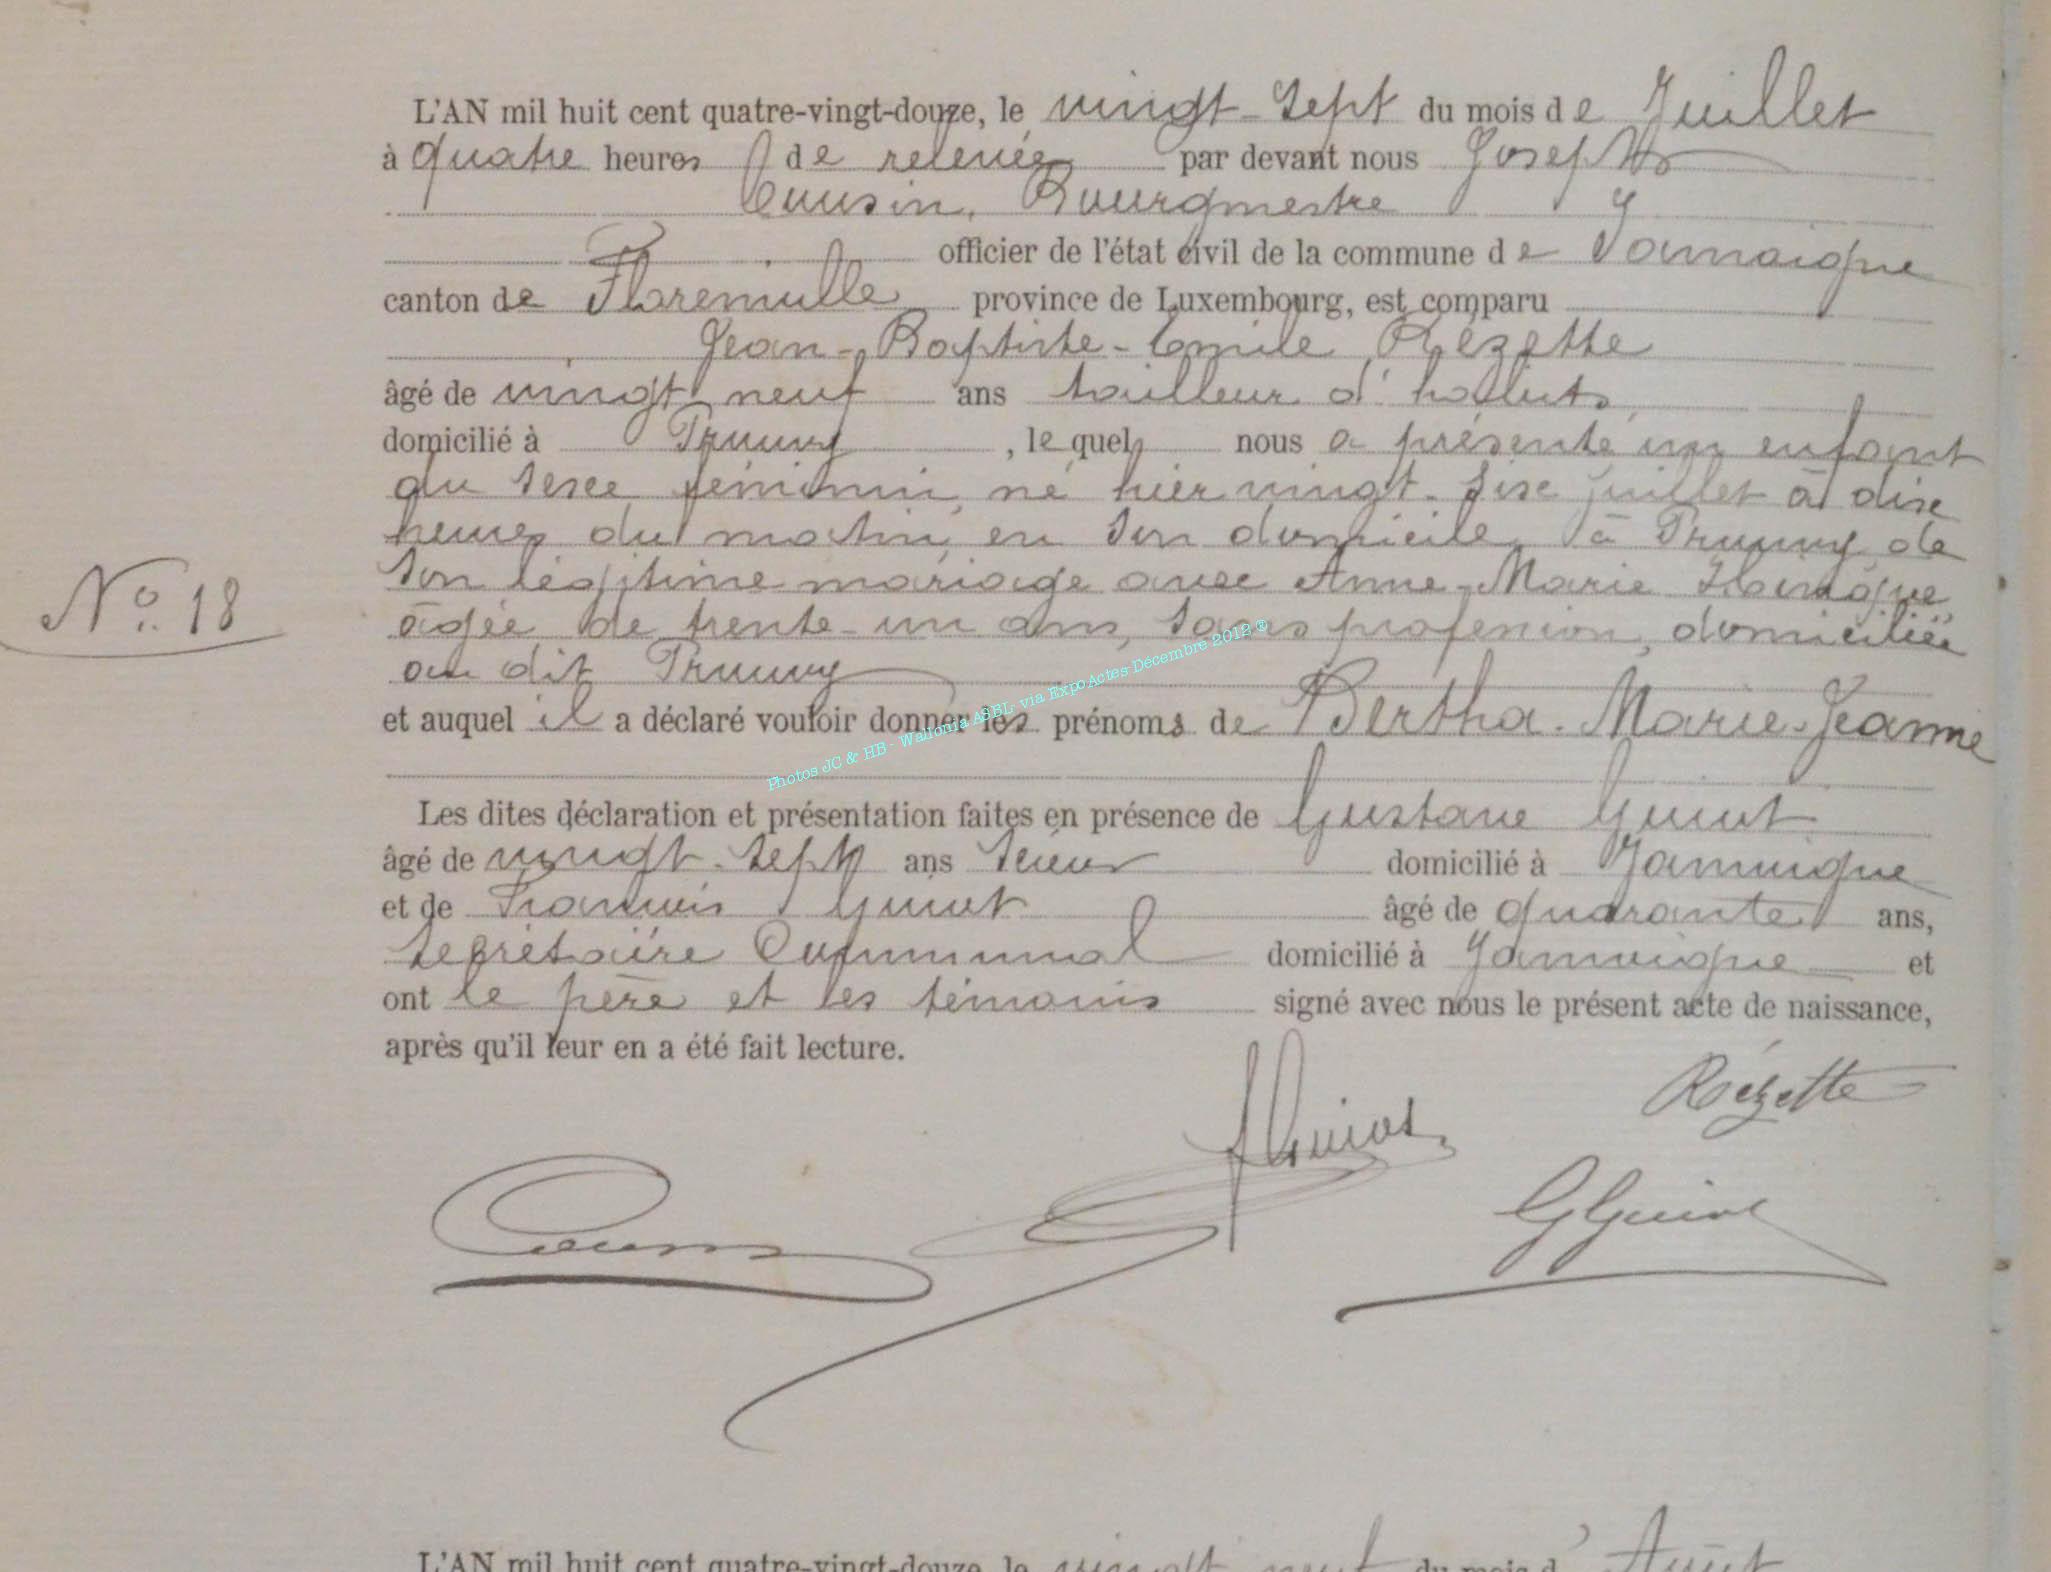 L'AN mil huit cent quatre-vingt-douze, le vingt-sept du mois de Juillet
à quatre heures de relevée par devant nous Joseph
Cousin, Bourgmestre
officier de l'état civil de la commune de Jamoigne
canton de Florenville province de Luxembourg, est comparu
Jean-Baptiste-Emile Rézette
âgé de vingt neuf ans tailleur d'habits
domicilié à Prouvy, lequel nous a présenté un enfant
du sexe féminin, né hier vingt-six juillet à dix
heures du matin, en son domicile, à Prouvy de
N° 18 son légitime mariage avec Anne-Marie
âgée de trente-un ans, sans profession, domiciliée
au dit Prouvy
et auquel il a déclaré vouloir donner les prénoms de Bertha-Marie-Jeanne
Photos JC & HB - Wallonia ASBL via ExpoActes Décembre 2012 ®
Les dites déclaration et présentation faites en présence de Gustave Guiot
âgé de vingt-sept ans scieur domicilié à Jamoigne
et de François Guiot âgé de quarante ans,
secrétaire communal domicilié à Jamoigne et
ont le père et les témoins signé avec nous le présent acte de naissance,
après qu'il leur en a été fait lecture.
Rézette
FGuiot
GGuiot
Cousin
L'AN mil huit cent quatre-vingt-douze, le vingt neuf du mois d'Août